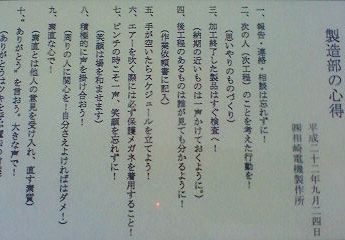 製造部の心得
平成二十二年九月二四日
㈱相崎電機製作所
一、報告・連絡・相談は忘れずに！
二、次の人（次工程）のことを考えた行動を！
（思いやりのものづくり）
三、加工終了した製品はすぐ検査へ！
（納期の近いものは一声かけておくように。）
四、後工程のあるものは誰が見ても分かるように！
（作業依頼書に記入）
五、手が空いたらスケジュールを立てよう！
六、エアーを吹く際には必ず保護メガネを着用すること！
七、ピンチの時こそ一声、笑顔を忘れずに！
（笑顔は場を和ませます）
八、積極的に声を掛け合おう！
（周りの人に関心を！自分さえよければはダメ！）
九、素直な心で！
（素直とは他人の意見を受け入れ、直す素質）
十、ありがとう、を言おう。大きな声で！